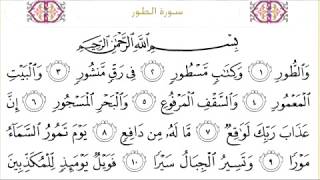 سورة الطور
بِسْمِ اللَّهِ الرَّحْمَٰنِ الرَّحِيمِ
وَالطُّورِ ۝١ وَكِتَابٍ مَّسْطُورٍ ۝٢ فِي رَقٍّ مَّنشُورٍ ۝٣ وَالْبَيْتِ
الْمَعْمُورِ ۝٤ وَالسَّقْفِ الْمَرْفُوعِ ۝٥ وَالْبَحْرِ الْمَسْجُورِ ۝٦ إِنَّ
عَذَابَ رَبِّكَ لَوَاقِعٌ ۝٧ مَّا لَهُ مِن دَافِعٍ ۝٨ يَوْمَ تَمُورُ السَّمَاءُ
مَوْرًا ۝٩ وَتَسِيرُ الْجِبَالُ سَيْرًا ۝١٠ فَوَيْلٌ يَوْمَئِذٍ لِّلْمُكَذِّبِينَ